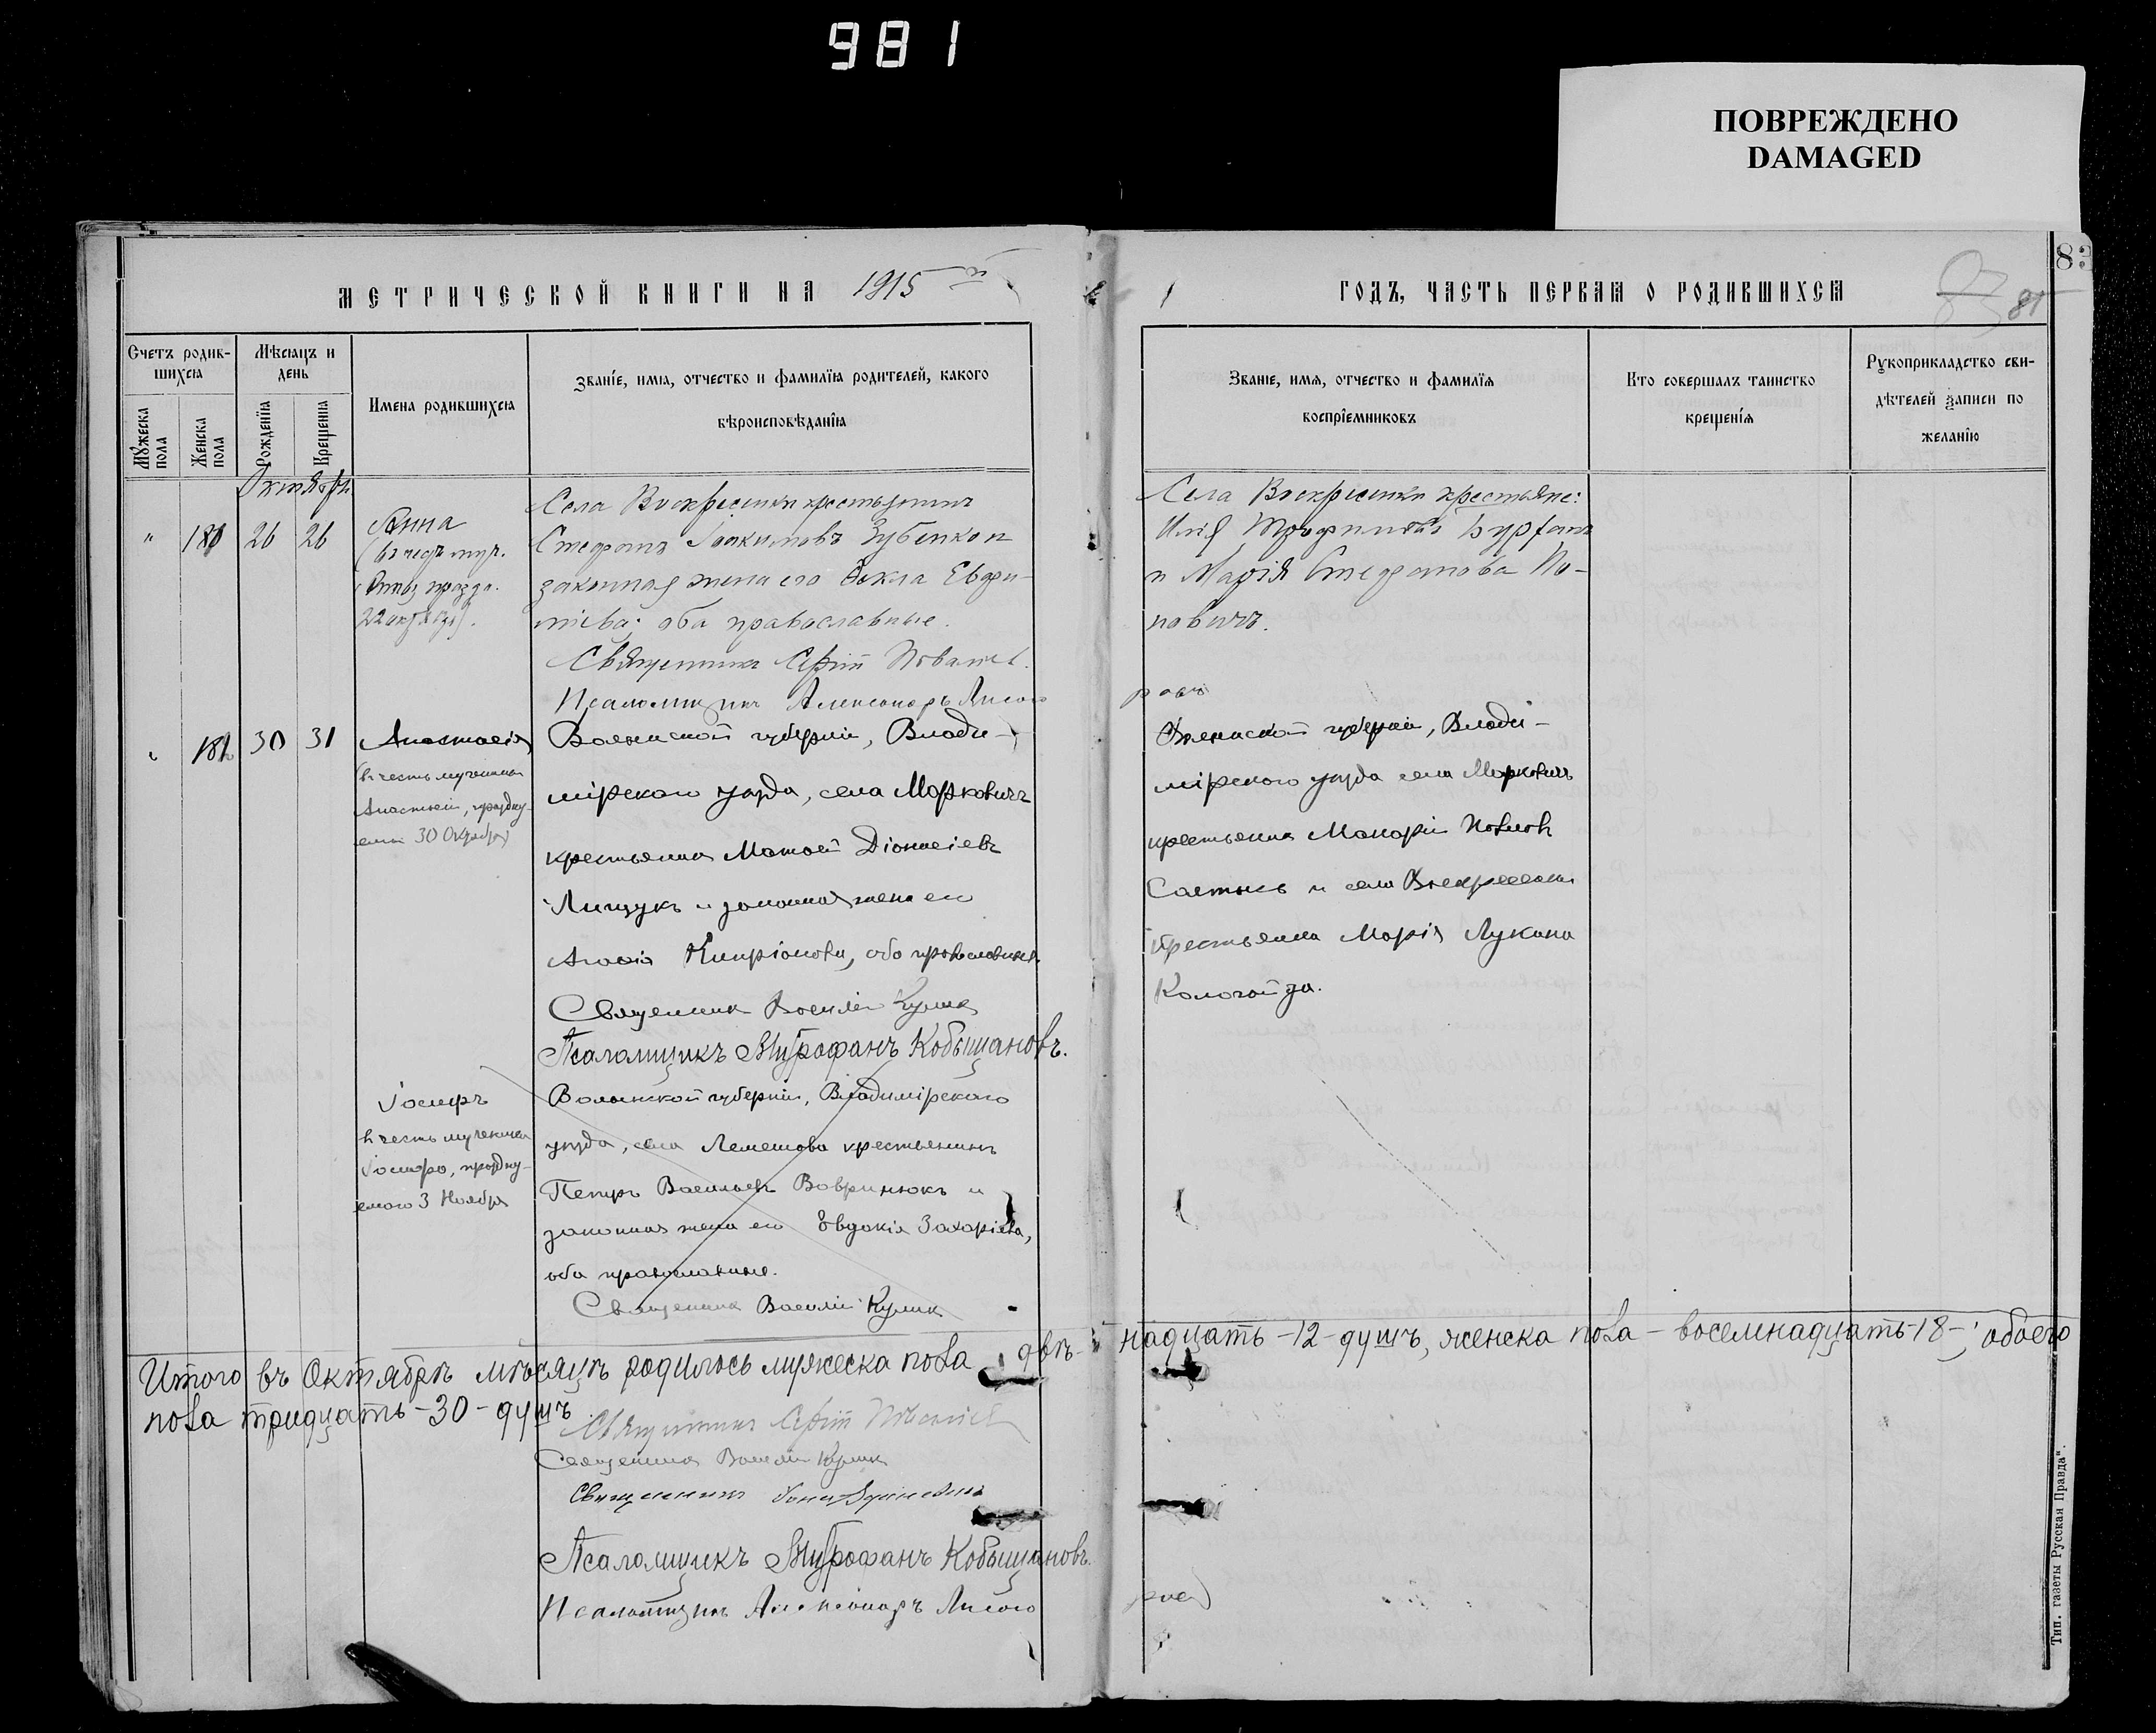 981
ПОВРЕЖДЕНО
DAMAGED
83
81
МЕТРИЧЕСКОЙ КНИГИ НА 1915 й
ГОДЪ, ЧАСТЬ ПЕРВАЯ О РОДИВШИХСЯ
Счетъ родив-
шихся
Мужеска пола
Женска пола
Мѣсяцъ и
день
Рожденїя
Крещенїя
Имена родившихся
Званїе, имя, отчество и фамилїя родителей, какого
вѣроисповѣданїя
Званїе, имя, отчество и фамилїя
воспрїемниковъ
Кто совершалъ таинство
крещенїя
Рукоприкладство сви-
дѣтелей записи по
желанїю
Октября
" 26 26
Анна
(въ честь муч.
празд.
22 октября).
Села Воскресенки крестьянинъ
Стефанъ Іоакимовъ Зубенко и
законная жена его Ѳекла Евфи-
міева; оба православные.
Священникъ
Псаломщикъ Александръ
Села Воскресенки крестьяне:
Илія Трофимовъ
и Марія Стефанова По-
повичъ.
30 31
Анастасія
(въ честь мученицы
Анастасіи, праздну-
емой 30 Октября)
Волынской губерніи, Влади-
мірскаго уѣзда, села Марковичъ
крестьянинъ Матѳей Діонисіевъ
Лищукъ и законная жена его
Агафія Кипріанова, оба православные.
Священникъ Василій Кулик
Псаломщикъ Митрофанъ Кобыщановъ.
Волынской губерніи, Влади-
мірскаго уѣзда села Марковичъ
крестьянинъ Макарій Павловъ
и села Воскресенки
крестьянка Марія Лукина
Кологойда.
Іосифъ
въ честь мученика
Іосифа, праздну-
емаго 3 Ноября
Волынской губерніи, Владимірскаго
уѣзда, села Лемешова крестьянинъ
Петръ Васильевъ Вавринюкъ и
законная жена его Евдокія Захаріева,
оба православные.
Священникъ Василій Кулик
Итого въ Октябрѣ мѣсяцѣ родилось мужеска пола двѣ-надцать -12- душъ, женска пола - восемнадцать -18-; обоего
пола тридцать -30- душъ
Священникъ
Священникъ Василій Кулик
Священникъ
Псаломщикъ Митрофанъ Кобыщановъ.
Псаломщикъ Александръ
Тип. газеты „Русская Правда“.